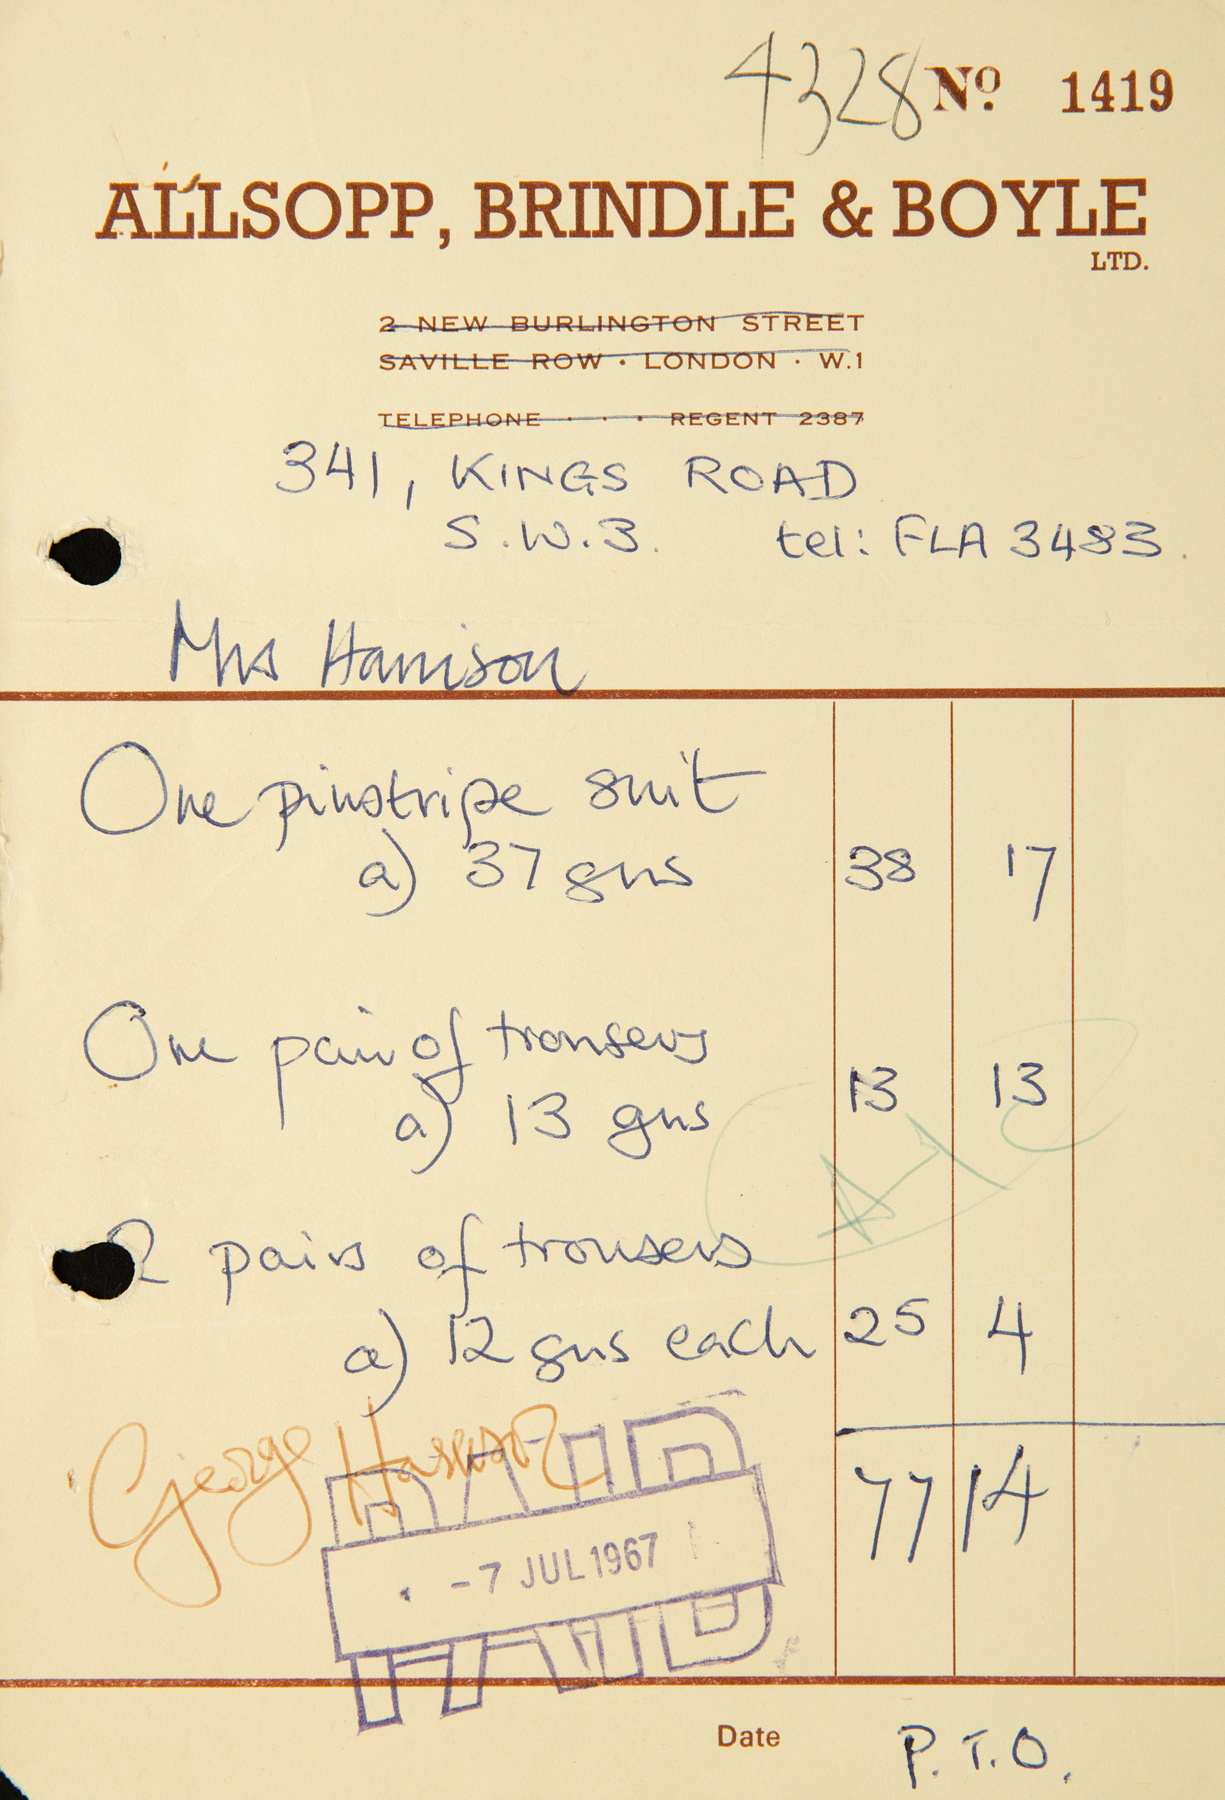 4328 No. 1419
ALLSOPP, BRINDLE & BOYLE
LTD.
2 NEW BURLINGTON STREET
SAVILLE ROW · LONDON · W.1
TELEPHONE · · · REGENT 2387
341, KINGS ROAD
S.W.3. tel: FLA 3483.
Mrs Harrison
One pinstripe suit
a) 37 gns 38 17
One pair of trousers
a) 13 gns 13 13
2 pairs of trousers
a) 12 gns each 25 4
George Harrison
PAID
77 14
-7 JUL 1967
PAID
Date P.T.O.